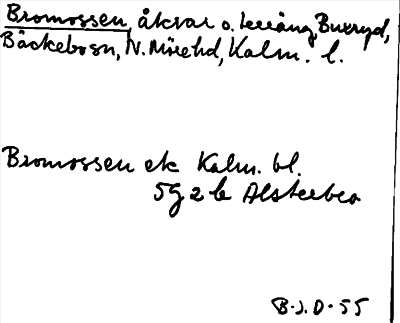 Bromossen, åkrar o. terräng, Buxryd,
Bäckebo sn, N. Möre hd, Kalm. l.
Bromossen ek Kalm. bl.
5G 2b Alsterbro
B.J.D. 55